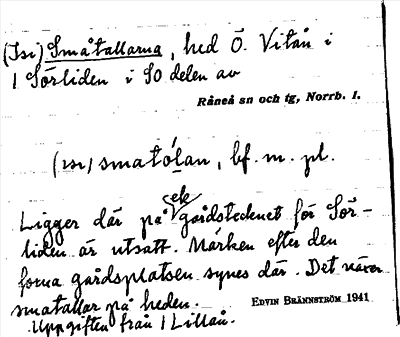 (Isi) Småtallarna, hed Ö. Vitån i
1 Sörliden i SO delen av
Råneå sn och tg, Norrb. l.
(ısı) smatólan, bf. m. pl.
Ligger där på ek gårdstecknet för Sör-
liden är utsatt. Märken efter den
forna gårdsplatsen synes där. Det växer
småtallar på heden.
EDVIN BRÄNNSTRÖM 1941
Uppgiften från 1 Lillån.